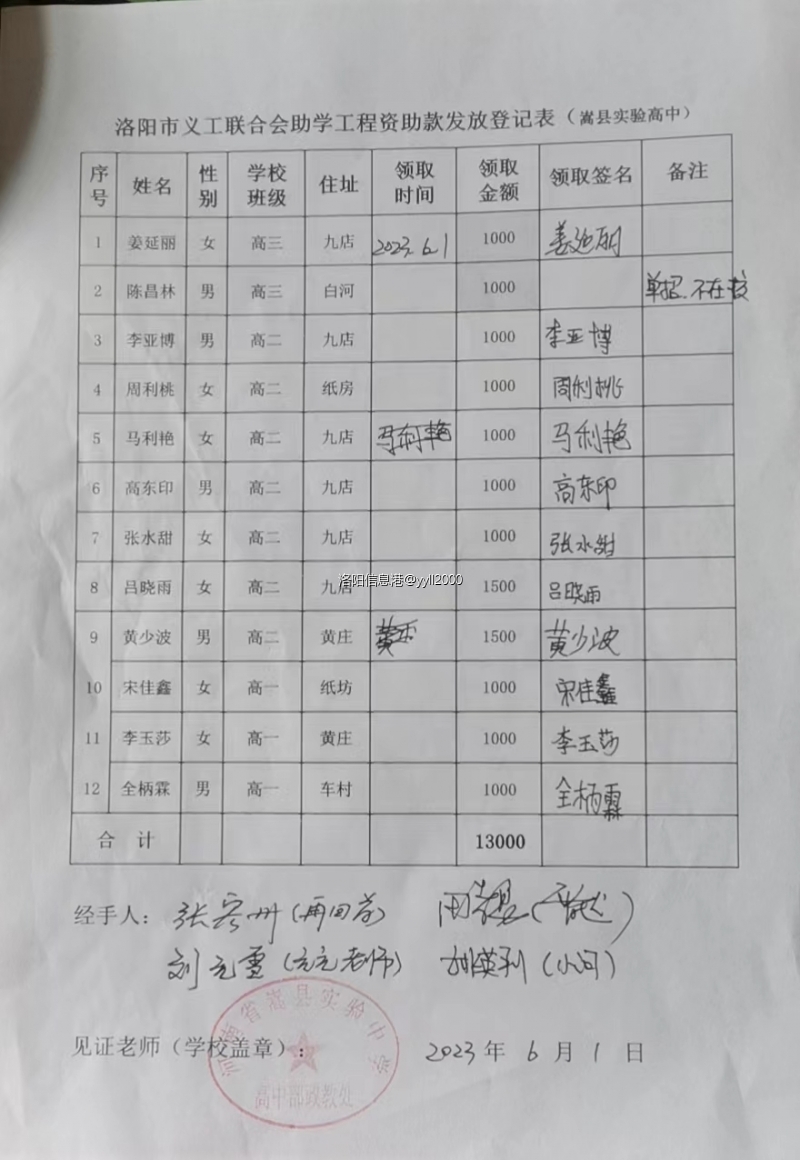 洛阳市义工联合会助学工程资助款发放登记表（嵩县实验高中）
序号 姓名 性别 学校班级 住址 领取时间 领取金额 领取签名 备注
1 姜延丽 女 高三 九店 2023.6.1 1000 姜延丽
2 陈昌林 男 高三 白河 1000 单招.不在校
3 李亚博 男 高二 九店 1000 李亚博
4 周利桃 女 高二 纸房 1000 周利桃
5 马利艳 女 高二 九店 马利艳 1000 马利艳
6 高东印 男 高二 九店 1000 高东印
7 张水甜 女 高二 九店 1000 张水甜
8 吕晓雨 女 高二 九店 1500 吕晓雨
洛阳信息港@yyll2000
9 黄少波 男 高二 黄庄 1500 黄少波
10 宋佳鑫 女 高一 纸坊 1000 宋佳鑫
11 李玉莎 女 高一 黄庄 1000 李玉莎
12 全柄霖 男 高一 车村 1000 全柄霖
合 计 13000
经手人：张 (再回首)
刘元雪 (元元老师) 胡英利 (小河)
见证老师（学校盖章）： 2023 年 6 月 1 日
河南省嵩县实验中学
高中部政教处